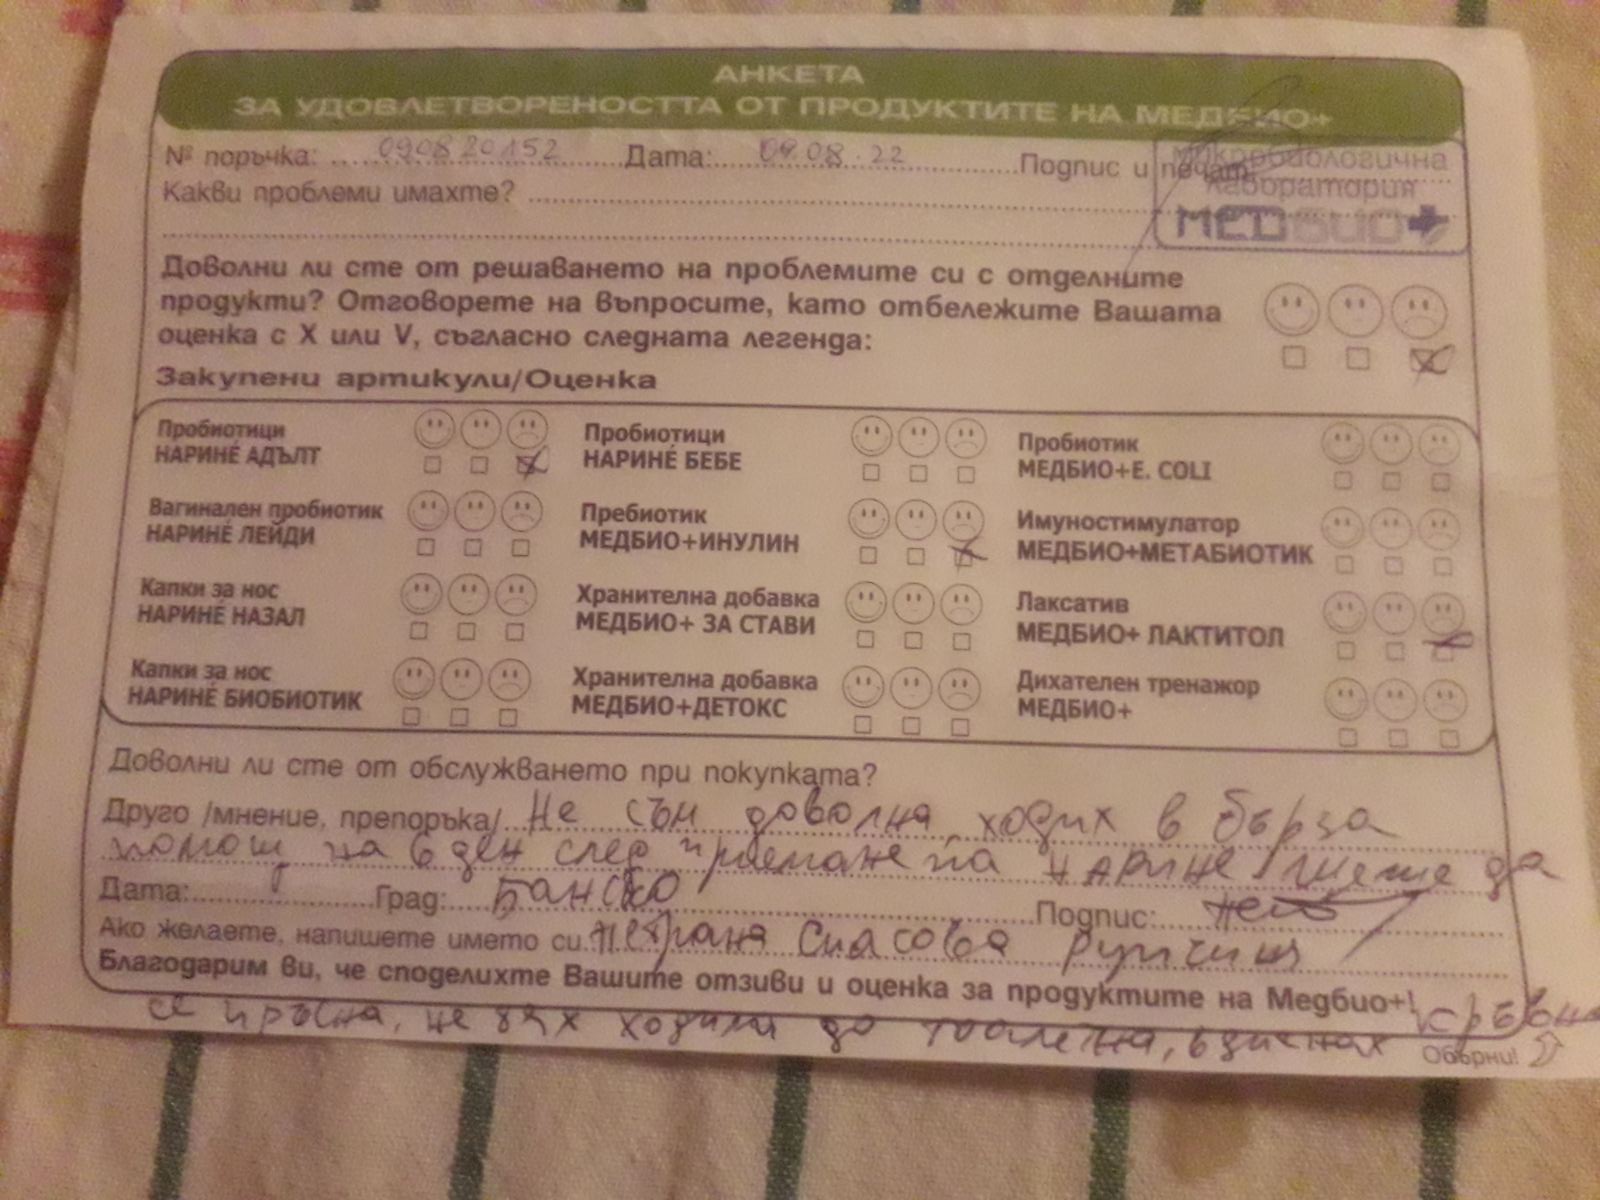 АНКЕТА
ЗА УДОВЛЕТВОРЕНОСТТА ОТ ПРОДУКТИТЕ НА МЕДБИО+
№ поръчка: 090820152 Дата: 09.08.22 Подпис и печат:
Микробиологична
лаборатория
МЕДБИО+
Какви проблеми имахте?
Доволни ли сте от решаването на проблемите си с отделните
продукти? Отговорете на въпросите, като отбележите Вашата
оценка с X или V, съгласно следната легенда:
Закупени артикули/Оценка
Пробиотици
НАРИНÉ АДЪЛТ
Пробиотици
НАРИНÉ БЕБЕ
Пробиотик
МЕДБИО+E. COLI
Вагинален пробиотик
НАРИНÉ ЛЕЙДИ
Пребиотик
МЕДБИО+ИНУЛИН
Имуностимулатор
МЕДБИО+МЕТАБИОТИК
Капки за нос
НАРИНÉ НАЗАЛ
Хранителна добавка
МЕДБИО+ ЗА СТАВИ
Лаксатив
МЕДБИО+ ЛАКТИТОЛ
Капки за нос
НАРИНÉ БИОБИОТИК
Хранителна добавка
МЕДБИО+ДЕТОКС
Дихателен тренажор
МЕДБИО+
Доволни ли сте от обслужването при покупката?
Друго /мнение, препоръка/ Не съм доволна, ходих в бърза
помощ на 6 ден след приемане на НАРИНЕ, щеше да
Дата: Град: Банско Подпис:
Ако желаете, напишете името си: Петрана Спасова
Благодарим ви, че споделихте Вашите отзиви и оценка за продуктите на Медбио+!
се пръсна, не бях ходила до тоалетна, вдигнах кръвно
Обърни!